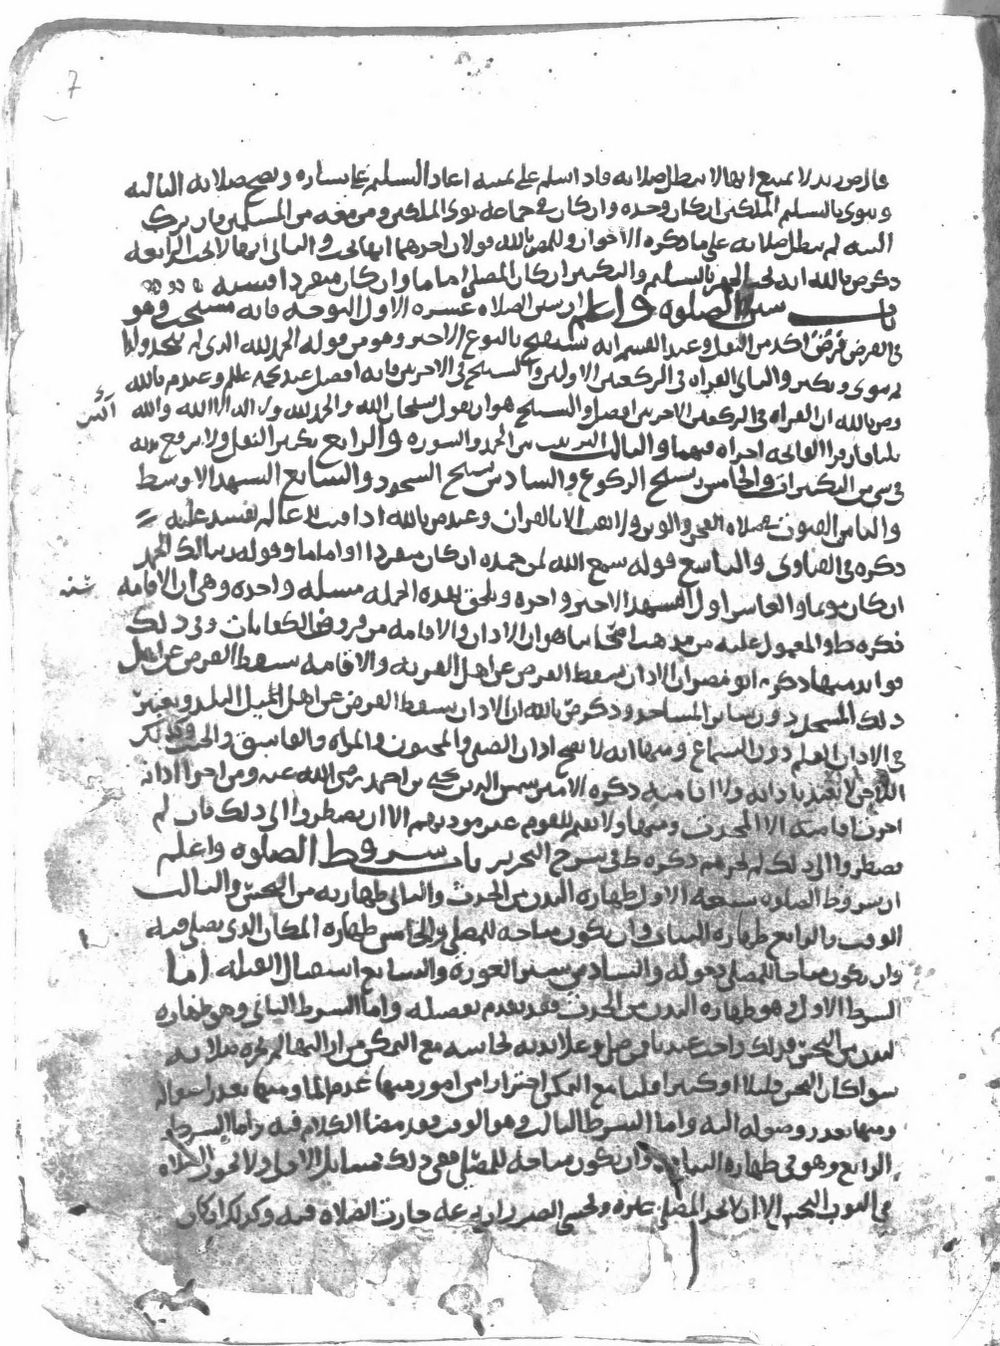 قال ص بالله لا يمنع انها لا تبطل صلاته فاذا سلم على يمينه اعاد التسليم على يساره وتصح صلاته الثانيه
وينوي بالتسليم الملكين ان كان وحده وان كان في جماعه نوى الملكين ومن معه من المسلمين فان ترك
النيه لم تبطل صلاته على ما ذكره الاخوان وللص بالله قولان احدهما انها تجب والثاني انها لا تجب الرابعه
ذكر ص بالله انه يجب الجهر بالتسليم والتكبير ان كان المصلي اماما وان كان منفردا
باب سنن الصلوه واعلم ان سنن الصلاه عشره الاول التوجه فانه مستحب وهو
في الفرض اكد من النفل وعند القسم انه يستفتح بالنوع الاخير وهو من قوله الحمد لله الذي لم يتخذ ولدا
ثم ينوي ويكبر والثاني القراه في الركعتين الاولتين والتسبيح في الاخرتين فانه افضل عند وعند م بالله
وص بالله ان القراه في الركعتين الاخرتين افضل والتسبيح هو ان يقول سبحان الله والحمد لله ولا اله الا الله والله اكبر
ثلثا فان قرا الفاتحه اجزاه فيهما والثالث الترتيب بين الحمد والسوره والرابع تكبير النقل ولا يرفع يديه
في شي من التكبيرات والخامس تسبيح الركوع والسادس تسبيح السجود والسابع التشهد الاوسط
والثامن القنوت في صلاه الفجر والوتر ولا يقنت الا بالقران وعند ص بالله اذا قنت بدعا لم تفسد عليه
ذكره في الفتاوى والتاسع قوله سمع الله لمن حمده ان كان منفردا او اماما وقوله ربنا لك الحمد
ان كان موتما والعاشر اول التشهد الاخير واخره ويلحق بهذه الجمله مسئله واحده وهي ان الاقامه سنه
ذكره ط والمعمول عليه من مذهب اصحابنا هو ان الاذان والاقامه من فروض الكفايات وفي ذلك
فوائد منها ذكره ابو مضر ان الاذان يسقط الفرض عن اهل القريه والاقامه تسقط الفرض عن اهل
ذلك المسجد دون سائر المساجد وذكر ص بالله ان الاذان يسقط الفرض عن اهل الميل البلد ويعتبر
في الاذان العلم دون السماع ومنها انه لا يصح اذان الصبي والمجنون والمراه والفاسق والجنب وكذلك
لا يعتد باذانه ولا اقامته ذكره الامير شمس الدين يحيى بن احمد رضي الله عنه ومن اجزا اذانه
اجزت اقامته الا المحدث ومنها ولا يقيم للقوم غير موذنهم الا ان يضطروا الى ذلك فان لم
يضطروا الى ذلك لم يجزهم ذكره ط في شرح التحرير باب شروط الصلوه واعلم
ان شروط الصلوه سبعه الاول طهاره البدن من الحدث والثاني طهارته من النجس والثالث
الوقت والرابع طهاره الثياب وان يكون مباحه للمصلي والخامس طهاره المكان الذي يصلي فيه
وان يكون مباحا للمصلي دخوله والسادس ستر العوره والسابع استقبال القبله اما
الشرط الاول وهو طهاره البدن من الحدث فقد تقدم تفصيله واما الشرط الثاني وهو طهاره
البدن من النجس فذلك واجب عندنا فمن صلى وعلى بدنه نجاسه مع التمكن من ازالتها لم تجزه صلاته
سوا كان النجس قليلا او كثيرا قلنا مع التمكن احترازا من امور منها عدم الما ومنها تعذر استعماله
ومنها تعذر وصوله اليه واما الشرط الثالث وهو الوقت فقد مضا الكلام فيه واما الشرط
الرابع وهو في طهاره الثياب وان يكون مباحه للمصلي ففي ذلك مسائل الاولى لا تجوز الصلاه
في الثوب النجس الا ان لا يجد المصلي غيره وخشي الضرر ان نزعه جازت الصلاه فيه وكذلك ان كان